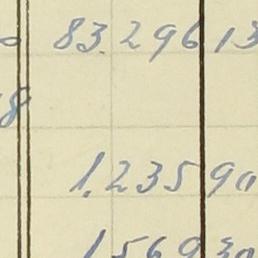 83.296 13
8
1.235 90
1.569 30